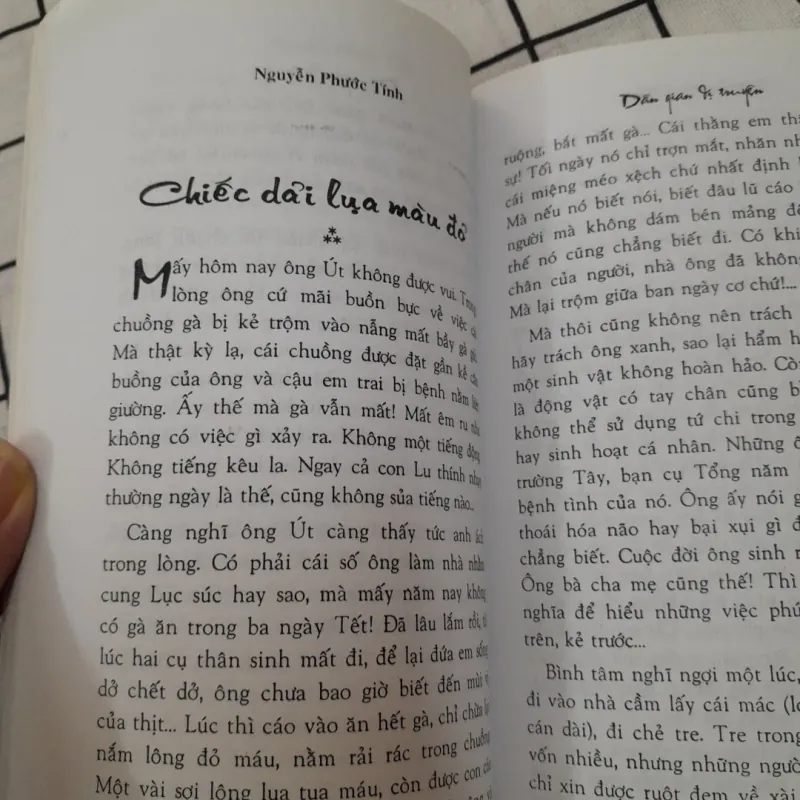 Nguyễn Phước Tính
Chiếc dải lụa màu đỏ
Mấy hôm nay ông Út không được vui. Trong
lòng ông cứ mãi buồn bực về việc cái
chuồng gà bị kẻ trộm vào nẵng mất bầy gà
Mà thật kỳ lạ, cái chuồng được đặt gần kề
buồng của ông và cậu em trai bị bệnh nằm liệt
giường. Ấy thế mà gà vẫn mất! Mất êm ru như
không có việc gì xảy ra. Không một tiếng động
Không tiếng kêu la. Ngay cả con Lu thính nhạy
thường ngày là thế, cũng không sủa tiếng nào...
Càng nghĩ ông Út càng thấy tức anh ách
trong lòng. Có phải cái số ông làm nhà nhân
cung Lục súc hay sao, mà mấy năm nay không
có gà ăn trong ba ngày Tết! Đã lâu lắm rồi, từ
lúc hai cụ thân sinh mất đi, để lại đứa em sống
dở chết dở, ông chưa bao giờ biết đến mùi vị
của thịt... Lúc thì cáo vào ăn hết gà, chỉ chừa lại
nắm lông đỏ máu, nằm rải rác trong chuồng
Một vài sợi lông lụa tua máu, còn được con
Dân gian dị truyện
ruộng, bắt mất gà... Cái thằng em
sự! Tối ngày nó chỉ trợn mắt, nhăn
cái miệng méo xệch chứ nhất định
Mà nếu nó biết nói, biết đâu lũ cáo
người mà không dám bén mảng
thế nó cũng chẳng biết đi. Có khi
chân của người, nhà ông đã không
Mà lại trộm giữa ban ngày cơ chứ!...
Mà thôi cũng không nên trách
hãy trách ông xanh, sao lại hẩm
một sinh vật không hoàn hảo. Còn
là động vật có tay chân cũng
không thể sử dụng tứ chi trong
hay sinh hoạt cá nhân. Những
trường Tây, bạn cụ Tổng năm
bệnh tình của nó. Ông ấy nói
thoái hóa não hay bại xụi gì
chẳng biết. Cuộc đời ông sinh
Ông bà cha mẹ cũng thế! Thì
nghĩa để hiểu những việc
trên, kẻ trước...
Bình tâm nghĩ ngợi một lúc,
đi vào nhà cầm lấy cái mác
cán dài), đi chẻ tre. Tre trong
vốn nhiều, nhưng những người
chỉ xin được ruột đem về xài